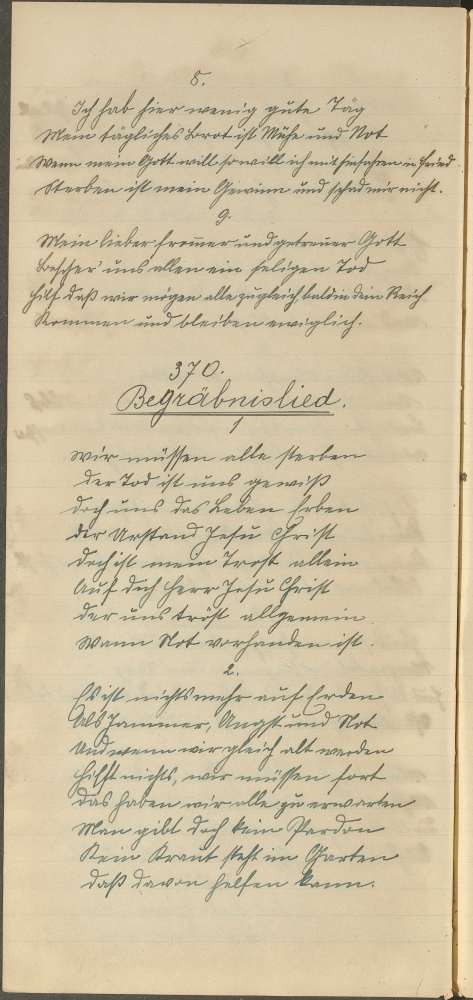 8.
Ich hab hier wenig gute Täg
Mein tägliches Brot ist Mühe und Not
Wenn mein Gott will, so will ich mit hinfahren in Fried
Sterben ist mein Gewinn und schad mir nicht.
9.
Mein lieber frommer und getreuer Gott
Bescher' uns allen ein seligen Tod
Hilf daß wir mögen alle zugleich bald in dein Reich
Kommen und bleiben ewiglich.
370.
Begräbnislied.
1
Wir müssen alle sterben
Der Tod ist uns gewiß
doch uns das Leben erben
der Urstand Jesu Christ
doch ist mein Trost allein
Auf dich Herr Jesu Christ
der uns tröst allgemein
Wann Not vorhanden ist.
2.
Es ist nichts mehr auf Erden
Als Jammer, Angst und Not
Und wenn wir gleich alt werden
Hilft nichts, wir müssen fort
Das haben wir alle zu erwarten
Man gibt doch kein Pardon
Kein Kraut steht im Garten
daß davon helfen kann.